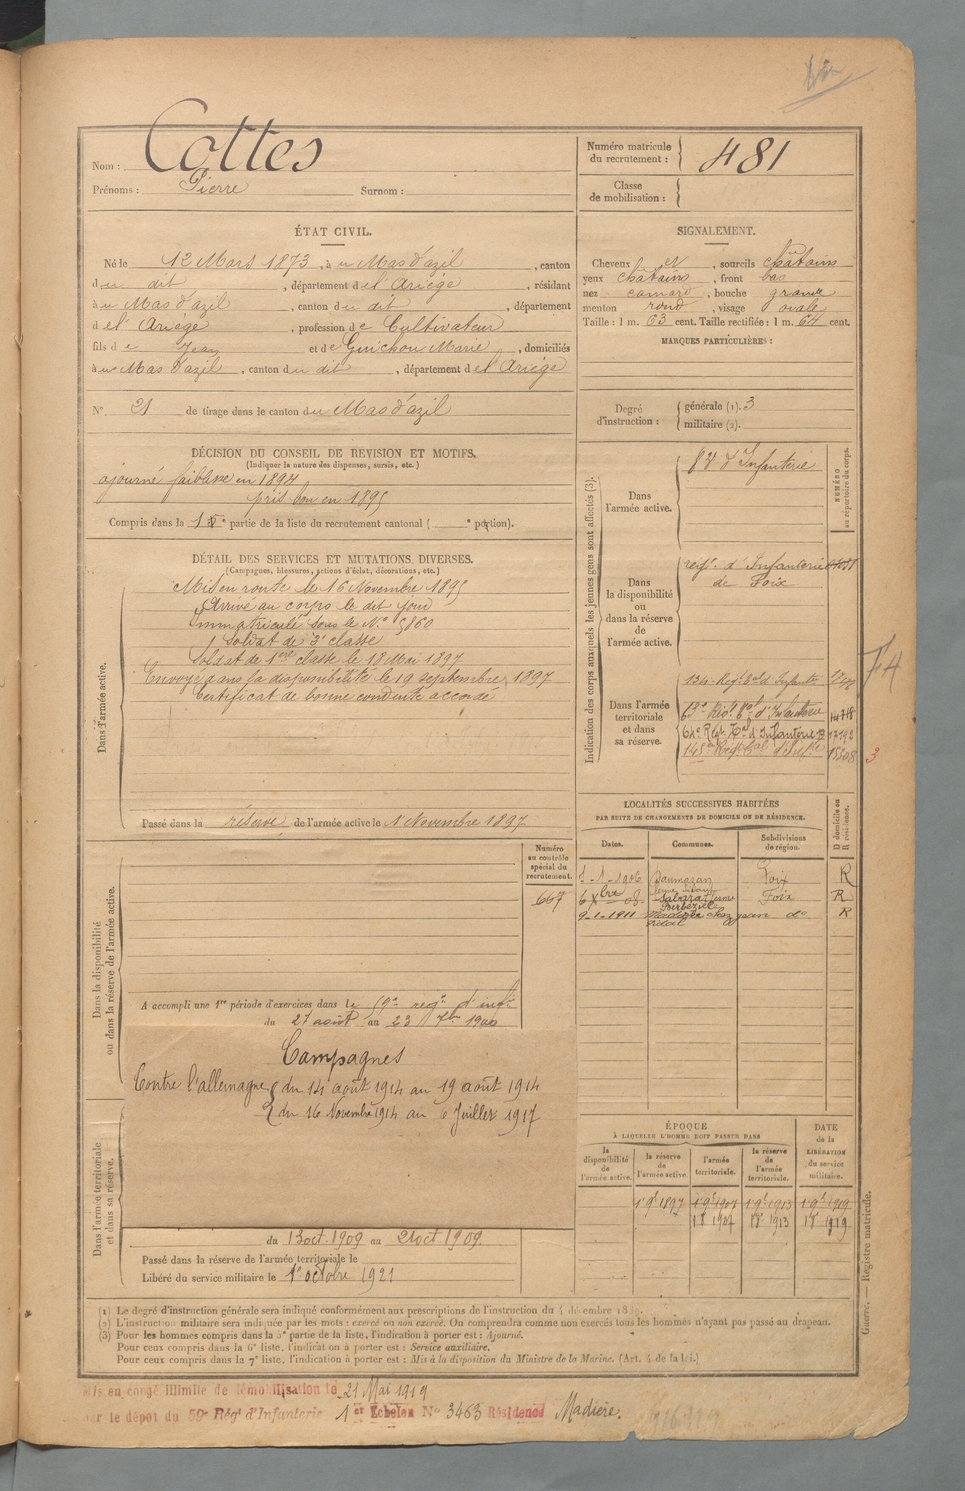 Nom : Cottes
Prénoms : Pierre Surnom :
Numéro matricule du recrutement : 481
Classe de mobilisation :
ÉTAT CIVIL.
Né le 12 Mars 1873, à u Mas d'azil, canton
du dit, département de l'Ariège, résidant
à u Mas d'azil, canton du dit, département
de l'Ariège, profession de Cultivateur
fils de Jean et de Guichou Marie, domiciliés
à u Mas d'azil, canton du dit, département de l'Ariège
N° 21 de tirage dans le canton du Mas d'azil
SIGNALEMENT.
Cheveux et, sourcils châtains
yeux châtains, front bas
nez camard, bouche grande
menton rond, visage ovale
Taille : 1 m. 63 cent. Taille rectifiée : 1 m. 64 cent.
MARQUES PARTICULIÈRES :
Degré d'instruction : générale (1). 3
militaire (2).
DÉCISION DU CONSEIL DE REVISION ET MOTIFS.
(Indiquer la nature des dispenses, sursis, etc.)
ajourné faiblesse en 1894
pris bon en 1895
Compris dans la 1e partie de la liste du recrutement cantonal ( e portion).
DÉTAIL DES SERVICES ET MUTATIONS DIVERSES.
(Campagnes, blessures, actions d'éclat, décorations, etc.)
Dans l'armée active.
Mis en route le 16 Novembre 1895
Arrivé au corps le dit jour
Immatriculé sous le N° 5860
Soldat de 2e classe
Soldat de 1ère classe le 18 Mai 1897
Envoyé dans la disponibilité le 19 septembre 1897
Certificat de bonne conduite accordé
Passé dans la réserve de l'armée active le 1 Novembre 1897
Indication des corps auxquels les jeunes gens sont affectés (3).
NUMÉRO au répertoire du corps.
Dans l'armée active.
d'Infanterie
Dans la disponibilité ou dans la réserve de l'armée active.
regt. d'Infanterie
de Foix
Dans l'armée territoriale et dans sa réserve.
134 Regt. tal d'Infanterie
63e Régt tal d'Infanterie 14718
64e Régt Tal d'Infanterie 17192
145e Regt tal d'Infie 15508
3
74
LOCALITÉS SUCCESSIVES HABITÉES
PAR SUITE DE CHANGEMENTS DE DOMICILE OU DE RÉSIDENCE.
D domicile ou R résidence.
Dates. Communes. Subdivisions de région.
1-1-1906 Daumazan Foix R
6 Xbre 08 Sabarat Foix R
9-1-1911 Madière chez jean do R
Vidal
Dans la disponibilité ou dans la réserve de l'armée active.
Numéro au contrôle spécial du recrutement.
667
A accompli une 1re période d'exercices dans le 59e regt d'infie
du 27 août au 23 7bre 1900
Campagnes
Contre l'allemagne du 14 août 1914 au 19 août 1914
du 16 Novembre 1914 au 6 Juillet 1917
Dans l'armée territoriale et dans sa réserve.
du 13 oct. 1909 au 21 oct 1909.
Passé dans la réserve de l'armée territoriale le
Libéré du service militaire le 1er octobre 1921
ÉPOQUE
À LAQUELLE L'HOMME DOIT PASSER DANS
DATE de la LIBÉRATION du service militaire.
la disponibilité de l'armée active.
la réserve de l'armée active.
l'armée territoriale.
la réserve de l'armée territoriale.
1 9e 1897 1 9e 1907 1 9e 1913 1 9e 1919
1907 1913 1919
Guerre. — Registre matricule.
(1) Le degré d'instruction générale sera indiqué conformément aux prescriptions de l'instruction du 4 décembre 1889.
(2) L'instruction militaire sera indiquée par les mots : exercé ou non exercé. On comprendra comme non exercés tous les hommes n'ayant pas passé au drapeau.
(3) Pour les hommes compris dans la 5e partie de la liste, l'indication à porter est : Ajourné.
Pour ceux compris dans la 6e liste, l'indication à porter est : Service auxiliaire.
Pour ceux compris dans la 7e liste, l'indication à porter est : Mis à la disposition du Ministre de la Marine. (Art. 4 de la loi.)
Mis en congé illimité de démobilisation le 21 Mai 1919
par le dépôt du 59e Régt d'Infanterie 1er Echelon N° 3463 Résidence Madière.